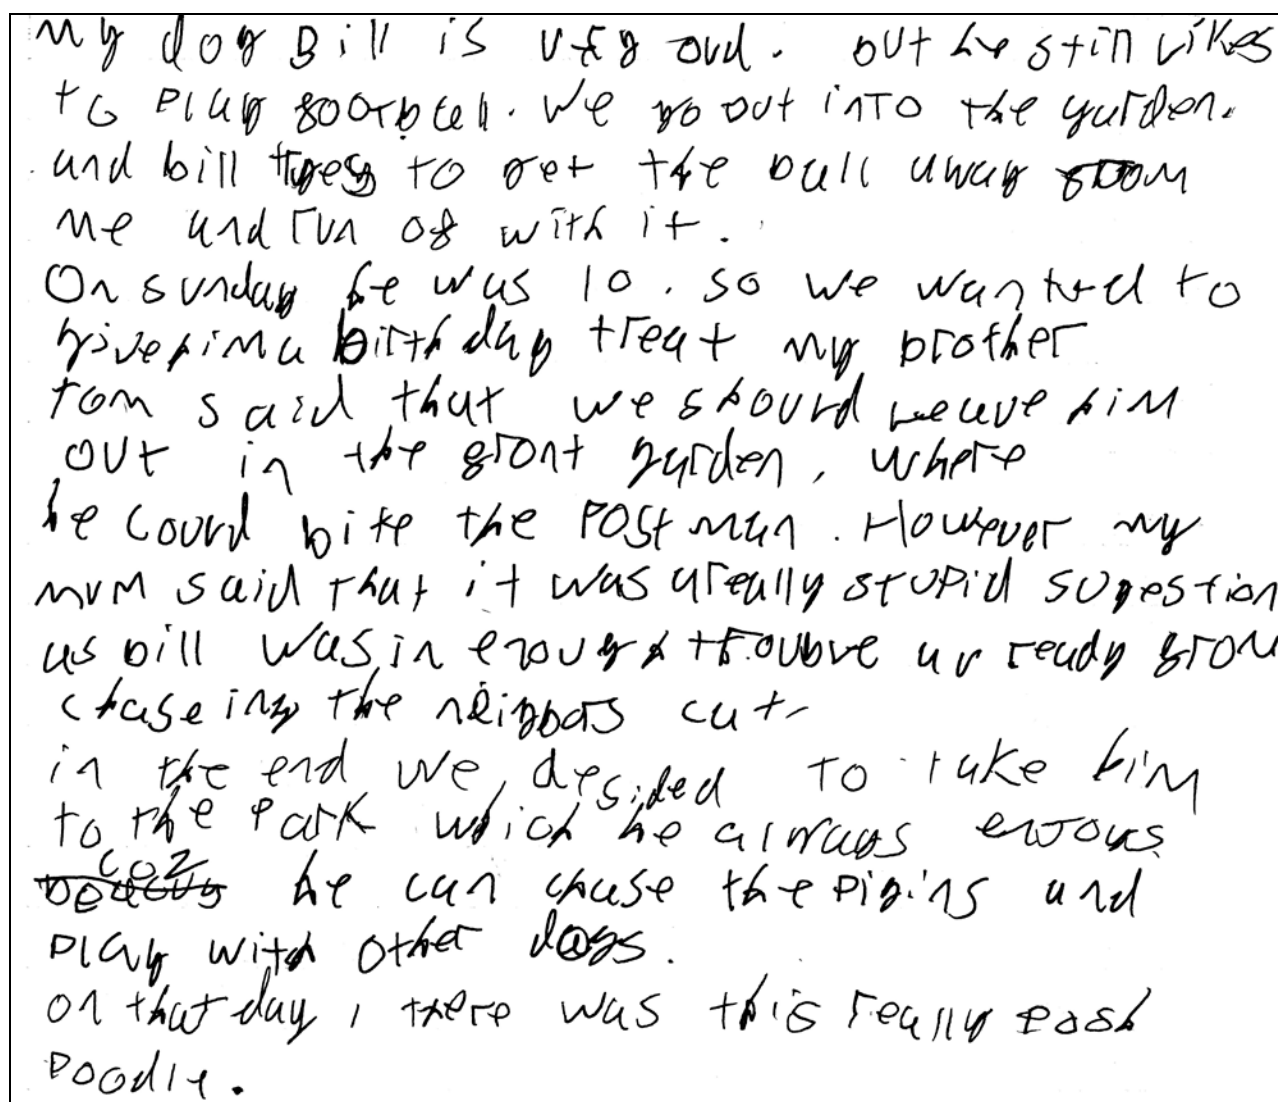 my dog Bill is very old. but he still likes
to Play football. We go out inTo the garden.
and bill tryes to get the ball away from
me and run of with it.
On sunday he was 10. so we wanted to
give him a birthday treat my brother
tom said that we should leave him
out in the front garden, where
he could bite the Postman. However my
mum said that it was a really stupid sugestion
as bill was in enough trouble already from
chaseing the neigbors cat.
in the end we desided to take him
to the Park which he always enjoys
coz he can chase the Pigins and
Play with other dogs.
on that day, there was this really posh
Poodle.